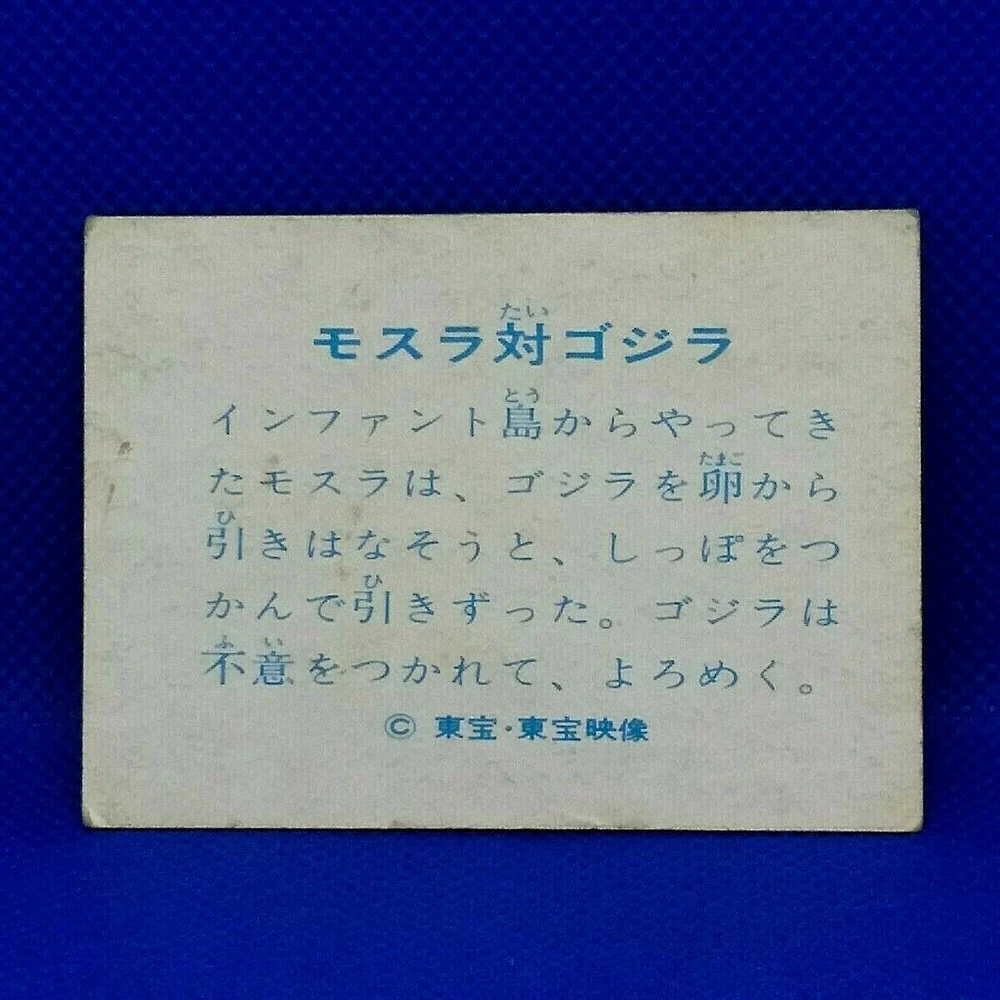 モスラ対ゴジラ
インファント島からやってき
たモスラは、ゴジラを卵から
引きはなそうと、しっぽをつ
かんで引きずった。ゴジラは
不意をつかれて、よろめく。
© 東宝・東宝映像